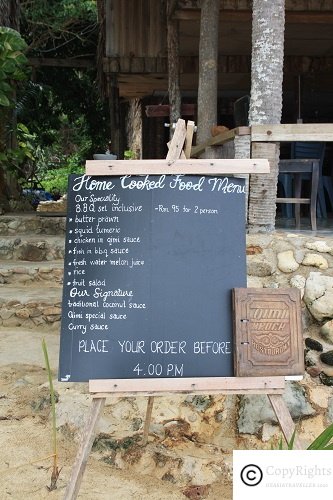 Home Cooked Food Menu
Our Speciality
B.B.Q set inclusive -Rm 95 for 2 person
* butter prawn
* squid tumeric
* chicken in Qimi sauce
* fish in bbq sauce
* fresh water melon juice
* rice
* fruit salad
Our Signature
traditional coconut sauce
Qimi special sauce
Curry sauce
PLACE YOUR ORDER BEFORE
4.00 PM
QIMI
© CopyRights